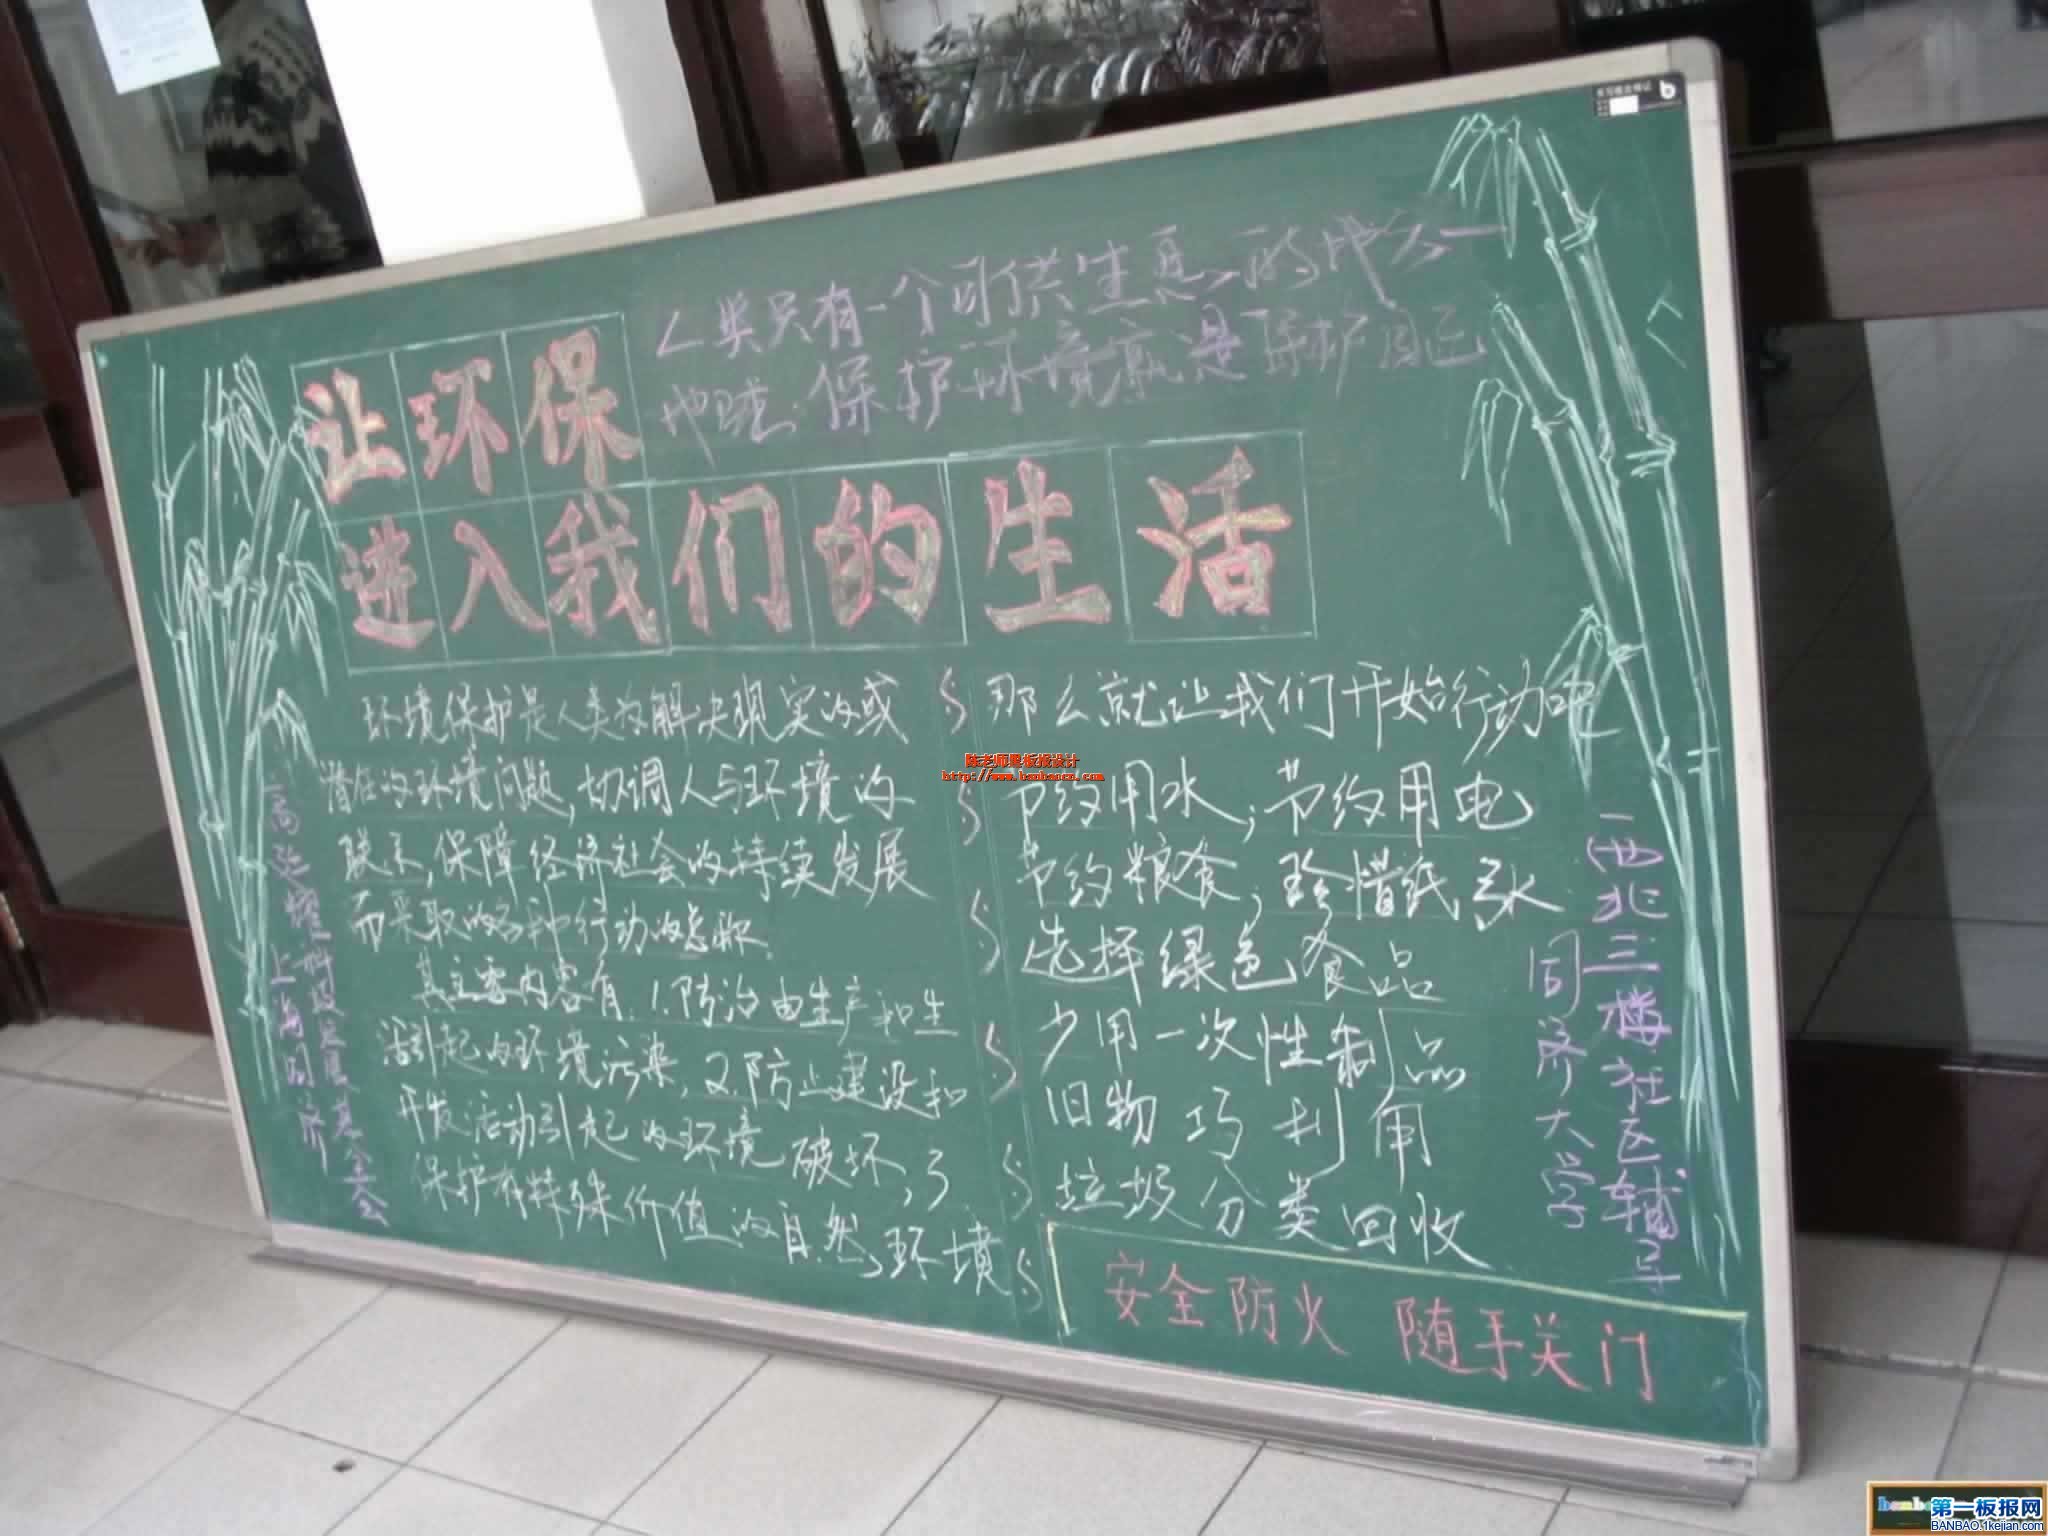 人类只有一个可供生息的
地球 保护环境就是保护自己
让环保
进入我们的生活
环境保护是人类为解决现实的或
潜在的环境问题,协调人与环境的
联系,保障经济社会的持续发展
而采取的各种行动的总称.
其主要内容有:1.防治由生产和生
活引起的环境污染,2.防止建设和
开发活动引起的环境破坏,3
保护有特殊价值的自然环境
那么就让我们开始行动吧
节约用水;节约用电
节约粮食;珍惜纸张
选择绿色食品
少用一次性制品
旧物巧利用
垃圾分类回收
安全防火 随手关门
西北三楼社区辅导
同济大学
科技发展基金会
上海同济
陈老师黑板报设计
第一板报网
BANBAO.1kejian.com